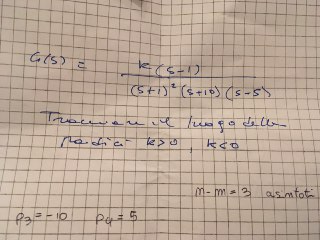 G(s) = k(s-1)
(s+1)² (s+10) (s-5)
Tracciare il luogo delle
radici k>0, k<0
n-m=3 asintoti
p3=-10 p4=5